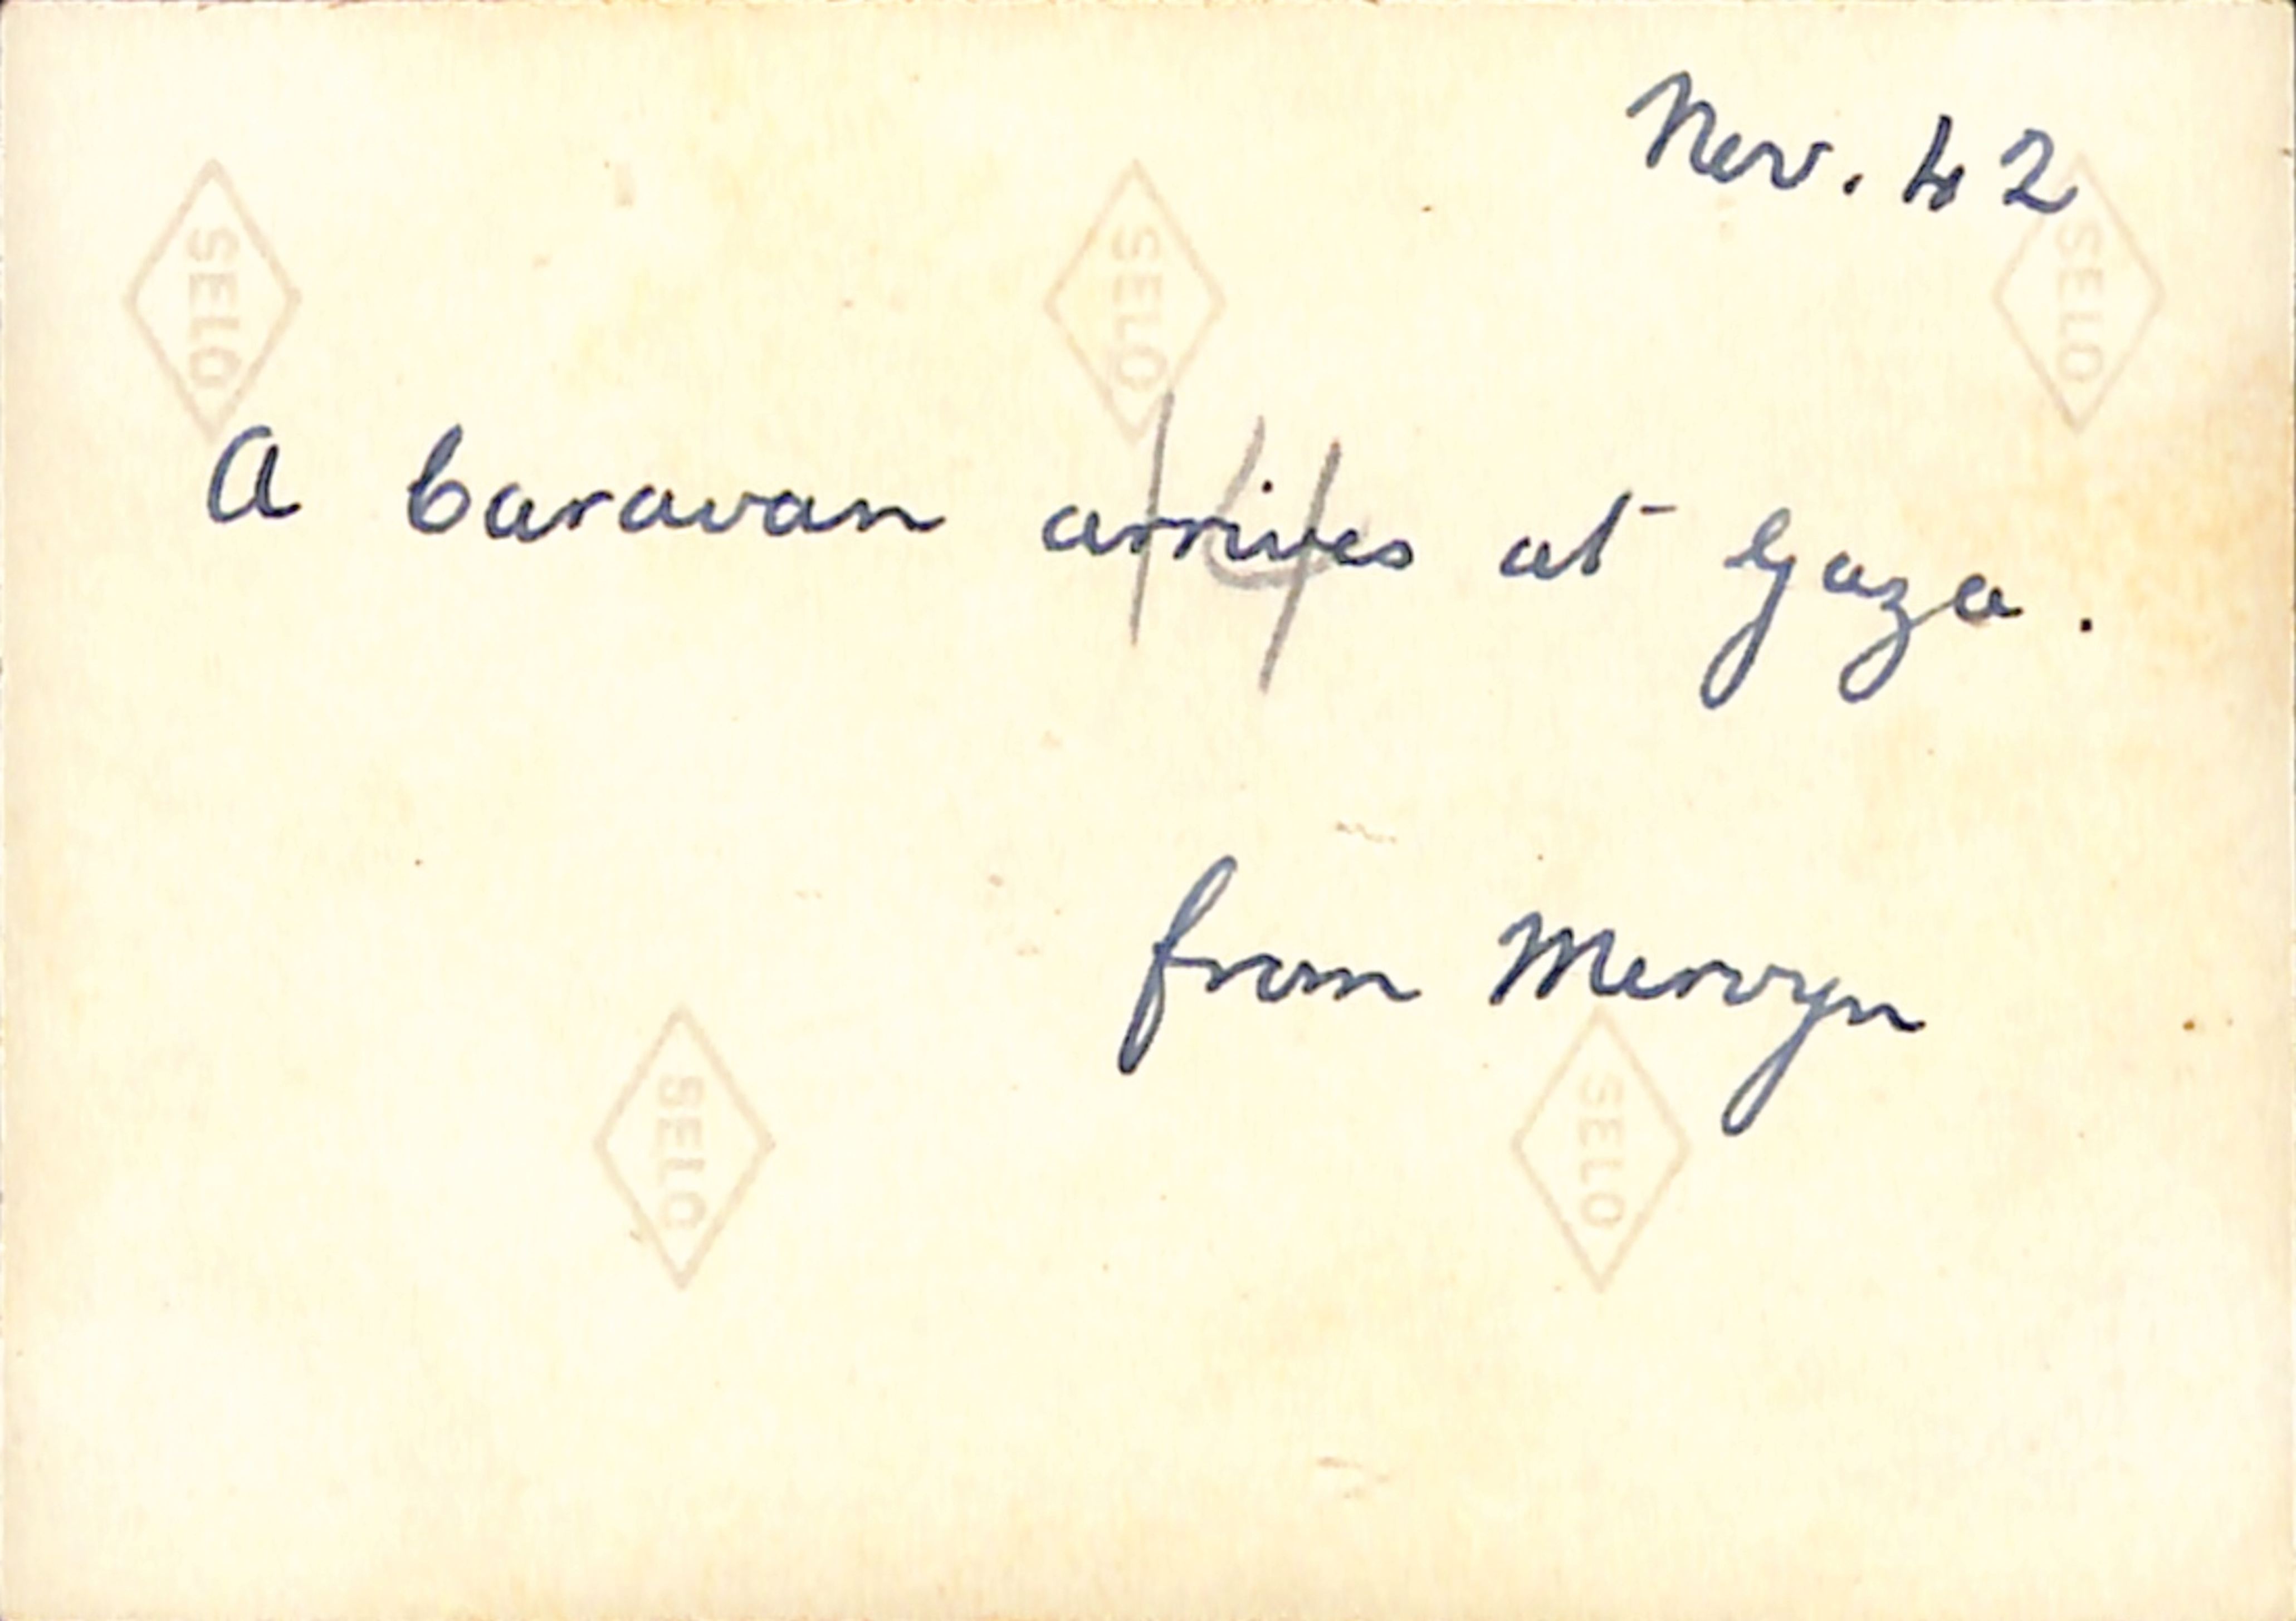 Nov. 42
SELO
SELO
SELO
A Caravan arrives at Gaza.
14
from Mervyn
SELO
SELO